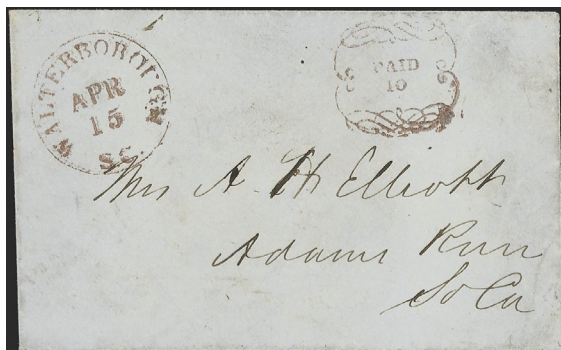 WALTERBOROUGH
APR
15
S.C.
PAID
10
Mrs A. H Elliott
Adams Run
So Ca